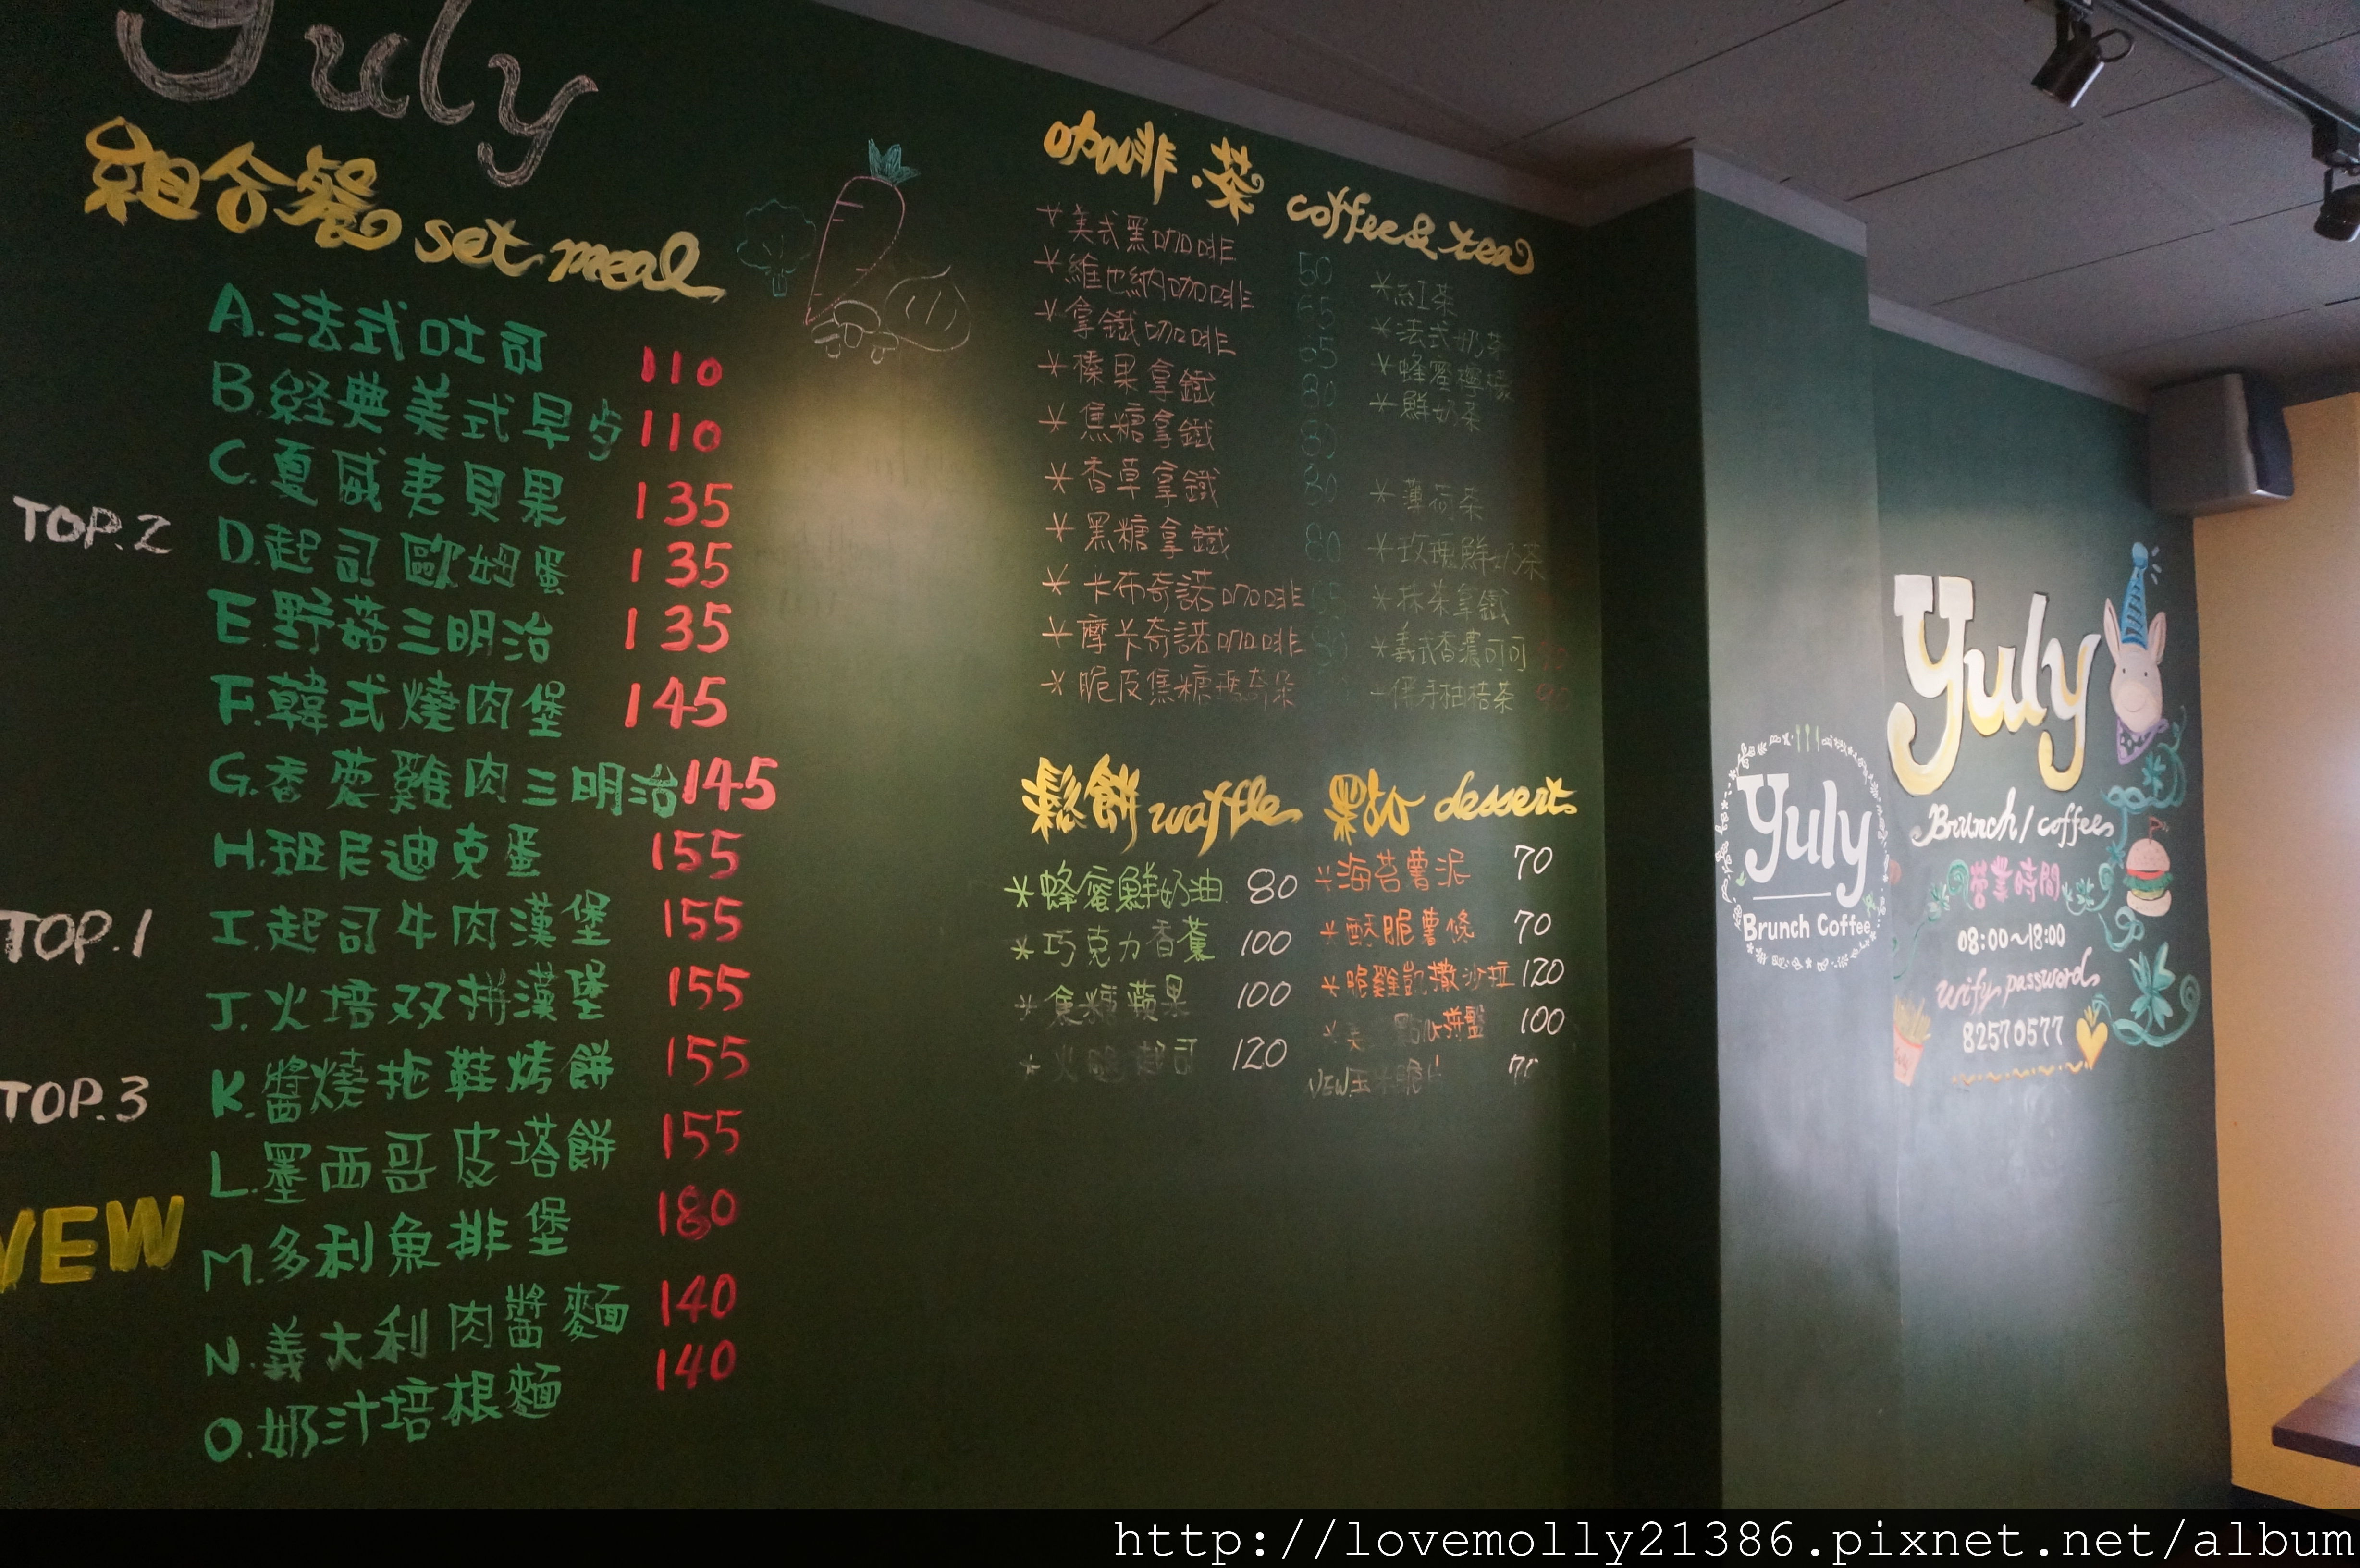 yuly
組合餐 set meal
A.法式吐司 110
B.経典美式早歺 110
C.夏威夷貝果 135
TOP.2 D.起司歐姆蛋 135
E.野菇三明治 135
F.韓式燒肉堡 145
G.香蔥雞肉三明治 145
H.班尼迪克蛋 155
TOP.1 I.起司牛肉漢堡 155
J.火培双拼漢堡 155
TOP.3 K.醬燒拖鞋烤餅 155
L.墨西哥皮塔餅 155
NEW M.多利魚排堡 180
N.義大利肉醬麵 140
O.奶汁培根麵 140
咖啡.茶 coffee & tea
*美式黑咖啡 50
*維也納咖啡 65
*拿鐵咖啡 65
*榛果拿鐵 80
*焦糖拿鐵 80
*香草拿鐵 80
*黑糖拿鐵 80
*卡布奇諾咖啡 65
*摩卡奇諾咖啡 80
*脆皮焦糖瑪奇朵
*紅茶
*法式奶茶
*蜂蜜檸檬
*鮮奶茶
*薄荷茶
*玫瑰鮮奶茶
*抹茶拿鐵
*義式香濃可可 90
-保手柚桔茶 90
鬆餅 waffle
*蜂蜜鮮奶油 80
*巧克力香蕉 100
*焦糖蘋果 100
*火腿起司 120
點心 dessert
*海苔薯泥 70
*酥脆薯條 70
*脆雞凱撒沙拉 120
*美 點心拼盤 100
NEW.玉米脆片
yuly
Brunch Coffee
yuly
Brunch / coffee
營業時間
08:00~18:00
wify password
82570577
http://lovemolly21386.pixnet.net/album